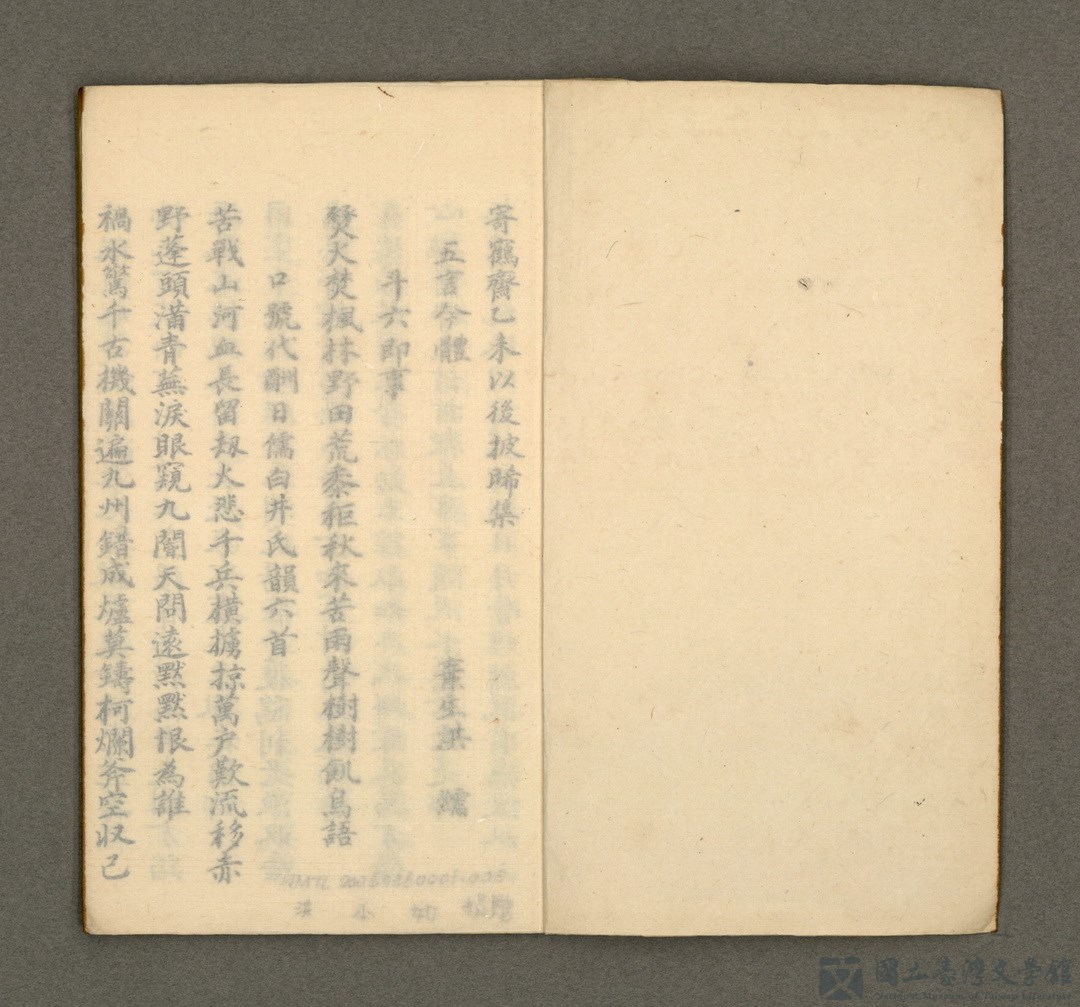 寄鶴齋乙未以後披晞集
五言今體
棄生洪 繻
斗六即事
燹火焚楓林野田荒黍秬秋來苦雨聲樹樹飢烏語
口號代酬日儒白井氏韻六首
苦戰山河血長留刼火悲千兵橫擄掠萬户歎流移赤
野蓬頭滿青蕪淚眼窺九閽天問遠黙黙恨為誰
禍水驚千古機關遍九州錯成爐莫鑄柯爛斧空収已
國立臺灣文學館